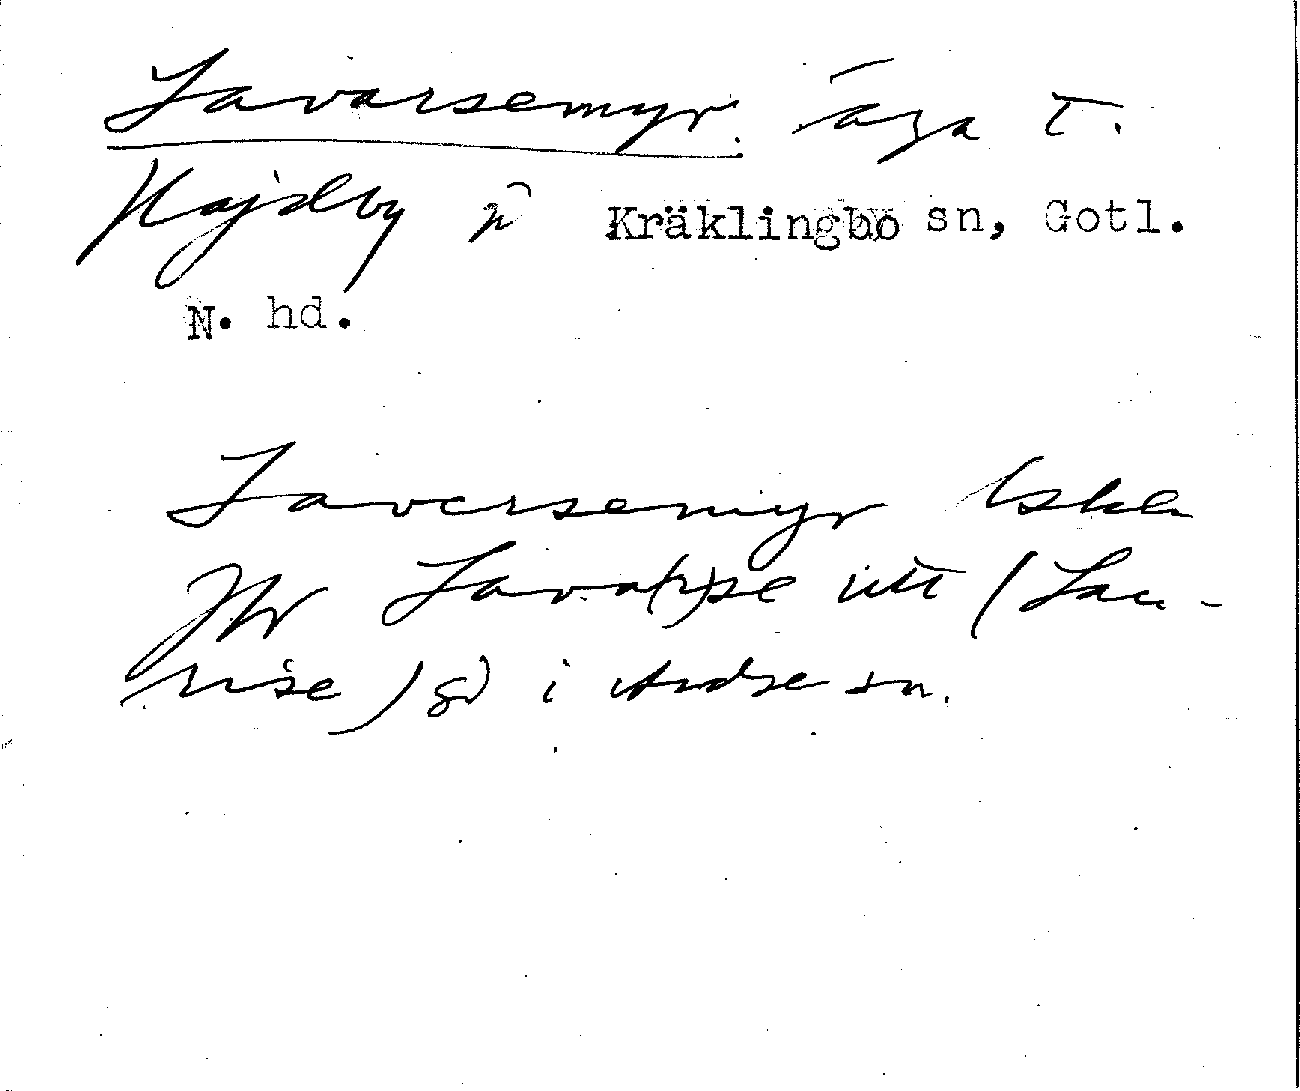 Lavarsemyr. äga t.
Hajdby på Kräklingbo sn, Gotl.
N. hd.
Laversemyr
Jfr Lava(r)se utt (Lau-
rise) gd i Ardre sn.